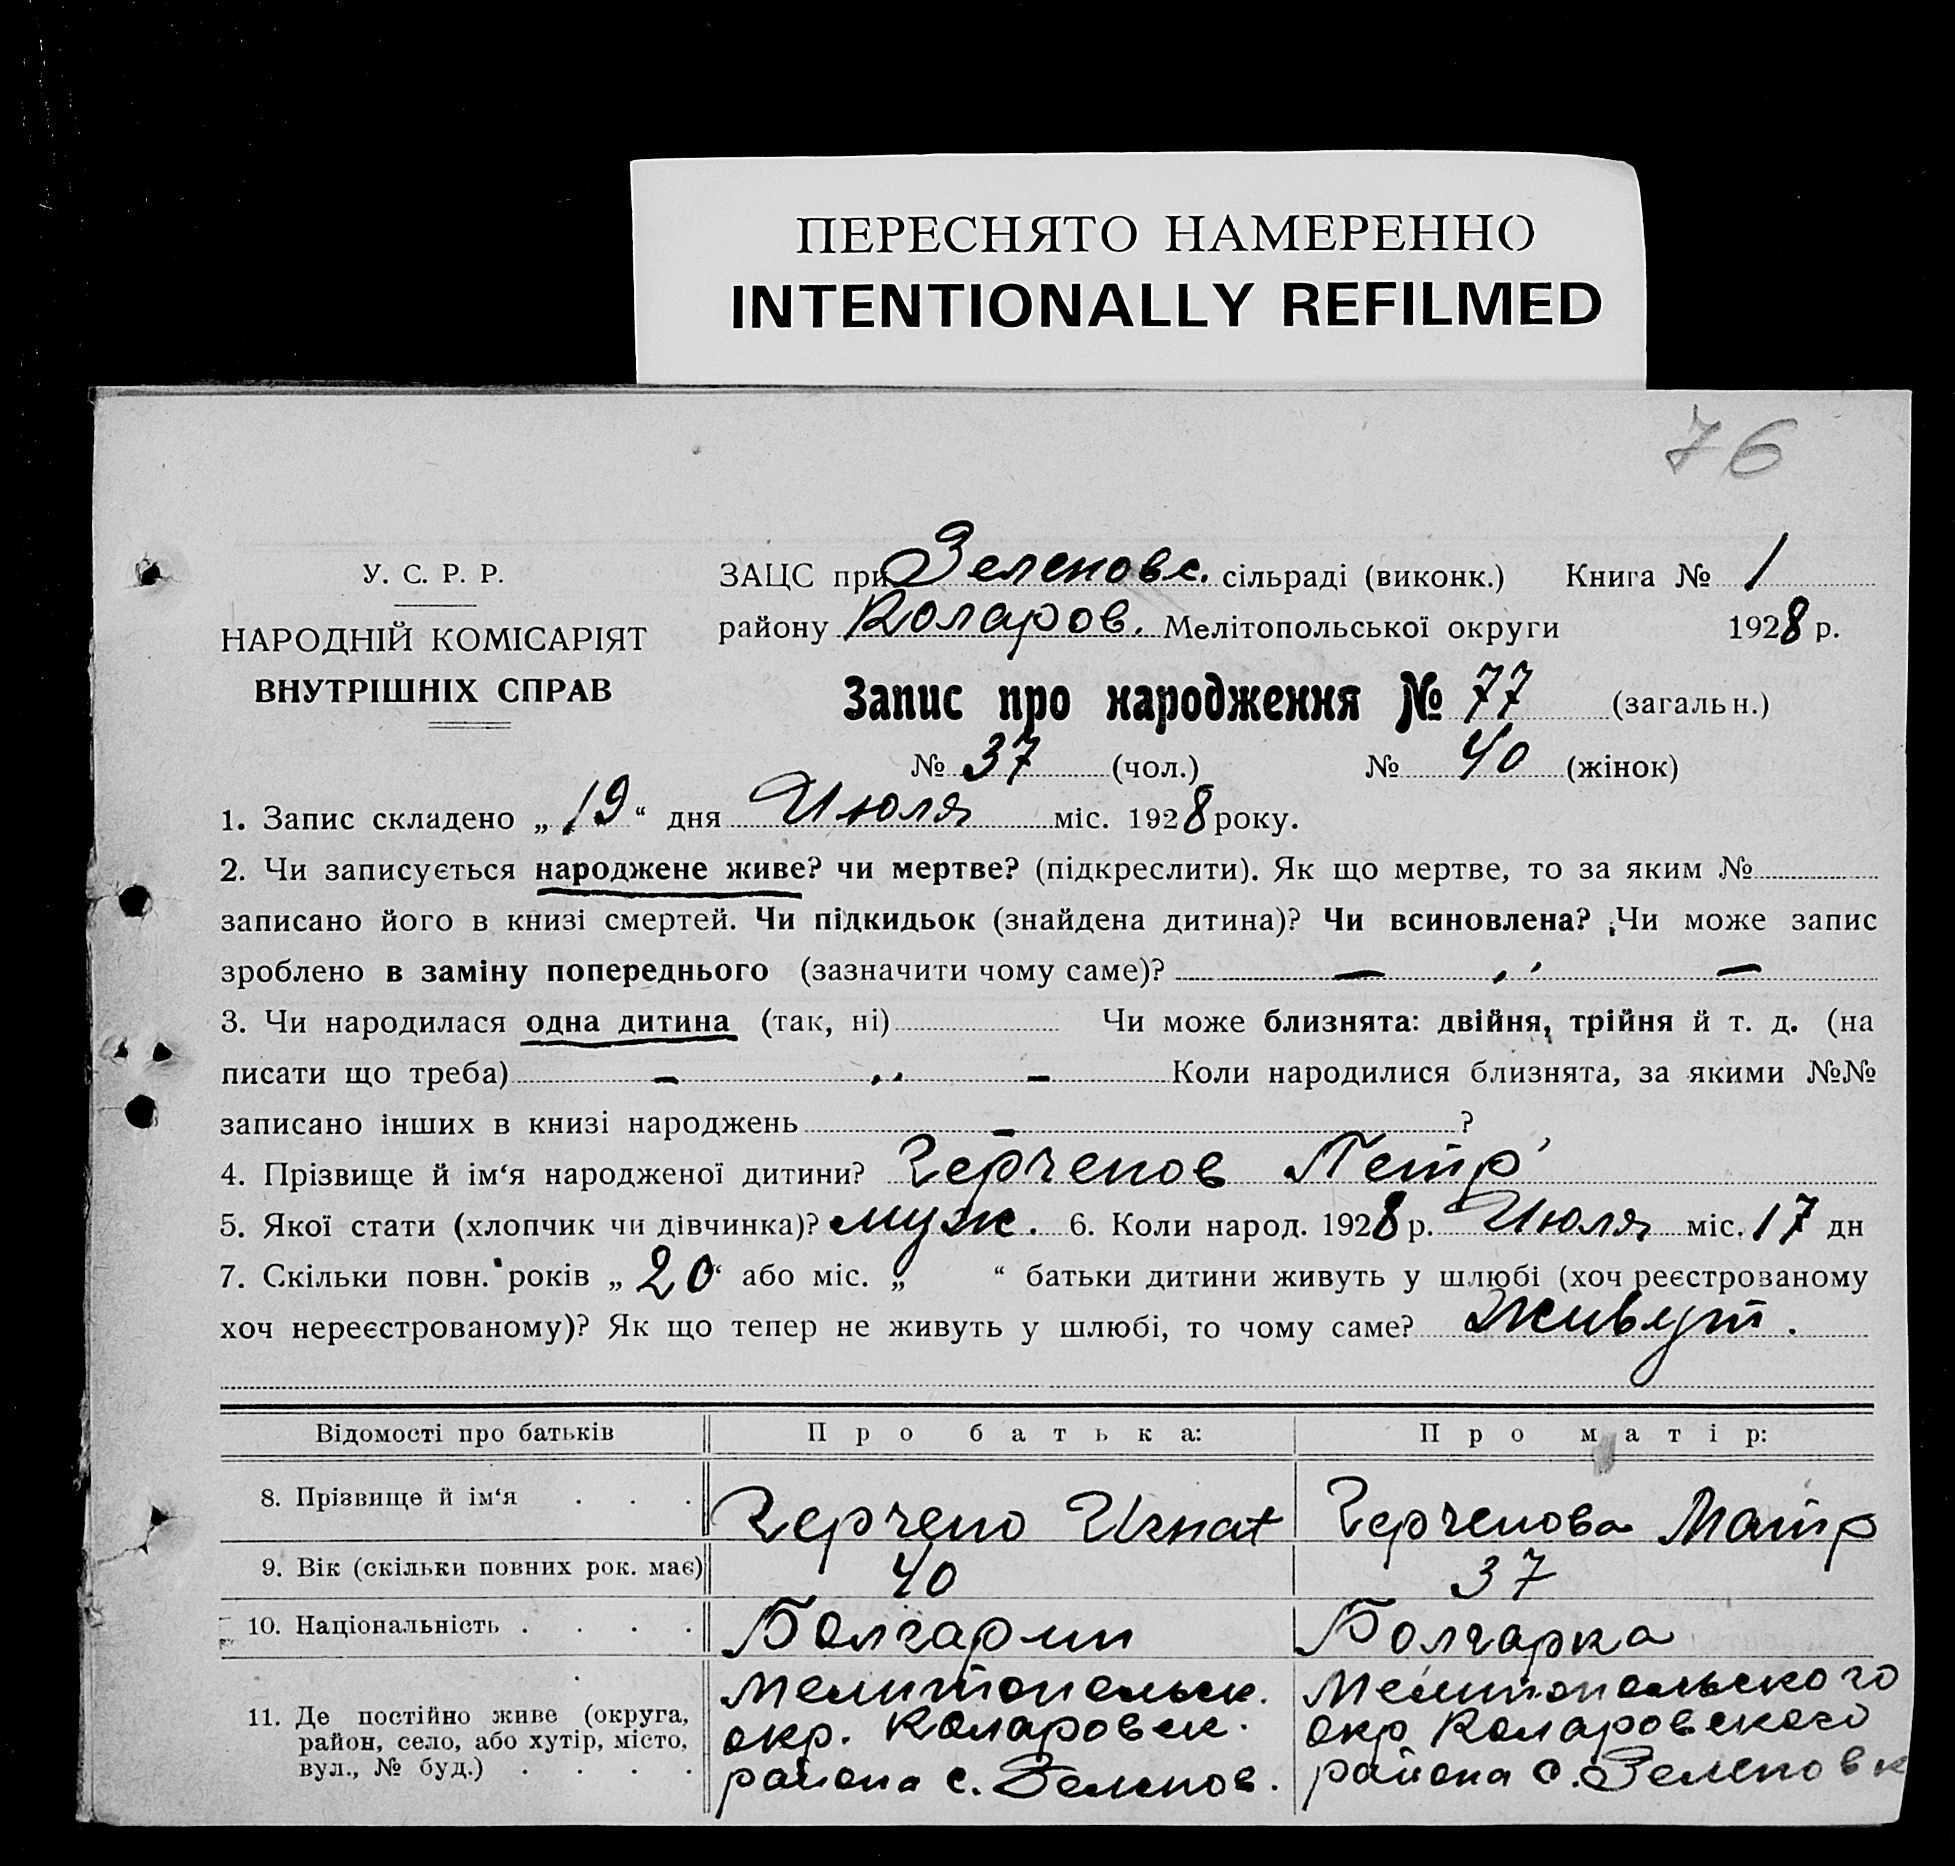 ПЕРЕСНЯТО НАМЕРЕННО
INTENTIONALLY REFILMED
76
У. С. Р. Р.
НАРОДНІЙ КОМІСАРІЯТ
ВНУТРІШНІХ СПРАВ
ЗАЦС при Зеленовс. сільраді (виконк.) Книга № 1
району Коларов. Мелітопольської округи 1928 р.
Запис про народження № 77 (загальн.)
№ 37 (чол.) № 40 (жінок)
1. Запис складено „19“ дня Июля міс. 1928 року.
2. Чи записується народжене живе? чи мертве? (підкреслити). Як що мертве, то за яким №
записано його в книзі смертей. Чи підкидьок (знайдена дитина)? Чи всиновлена? Чи може запис
зроблено в заміну попереднього (зазначити чому саме)? — „ —
3. Чи народилася одна дитина (так, ні) Чи може близнята: двійня, трійня й т. д. (на
писати що треба) — „ — Коли народилися близнята, за якими №№
записано інших в книзі народжень — ?
4. Прізвище й ім‘я народженої дитини? Герченов Петр
5. Якої стати (хлопчик чи дівчинка)? муж. 6. Коли народ. 1928 р. Июля міс. 17 дн
7. Скільки повн. років „20“ або міс. „ “ батьки дитини живуть у шлюбі (хоч реєстрованому
хоч нереєстрованому)? Як що тепер не живуть у шлюбі, то чому саме? Живут.
Відомості про батьків Про батька: Про матір:
8. Прізвище й ім‘я . . . Герчено Игнат Герченова Матр
9. Вік (скільки повних рок. має) 40 37
10. Національність . . . . Болгарин Болгарка
11. Де постійно живе (округа, район, село, або хутір, місто, вул., № буд.) . . . .
Мелитопольск. окр. Коларовск. района с. Зеленов.
Мелитопольского окр Коларовского района с. Зеленовк